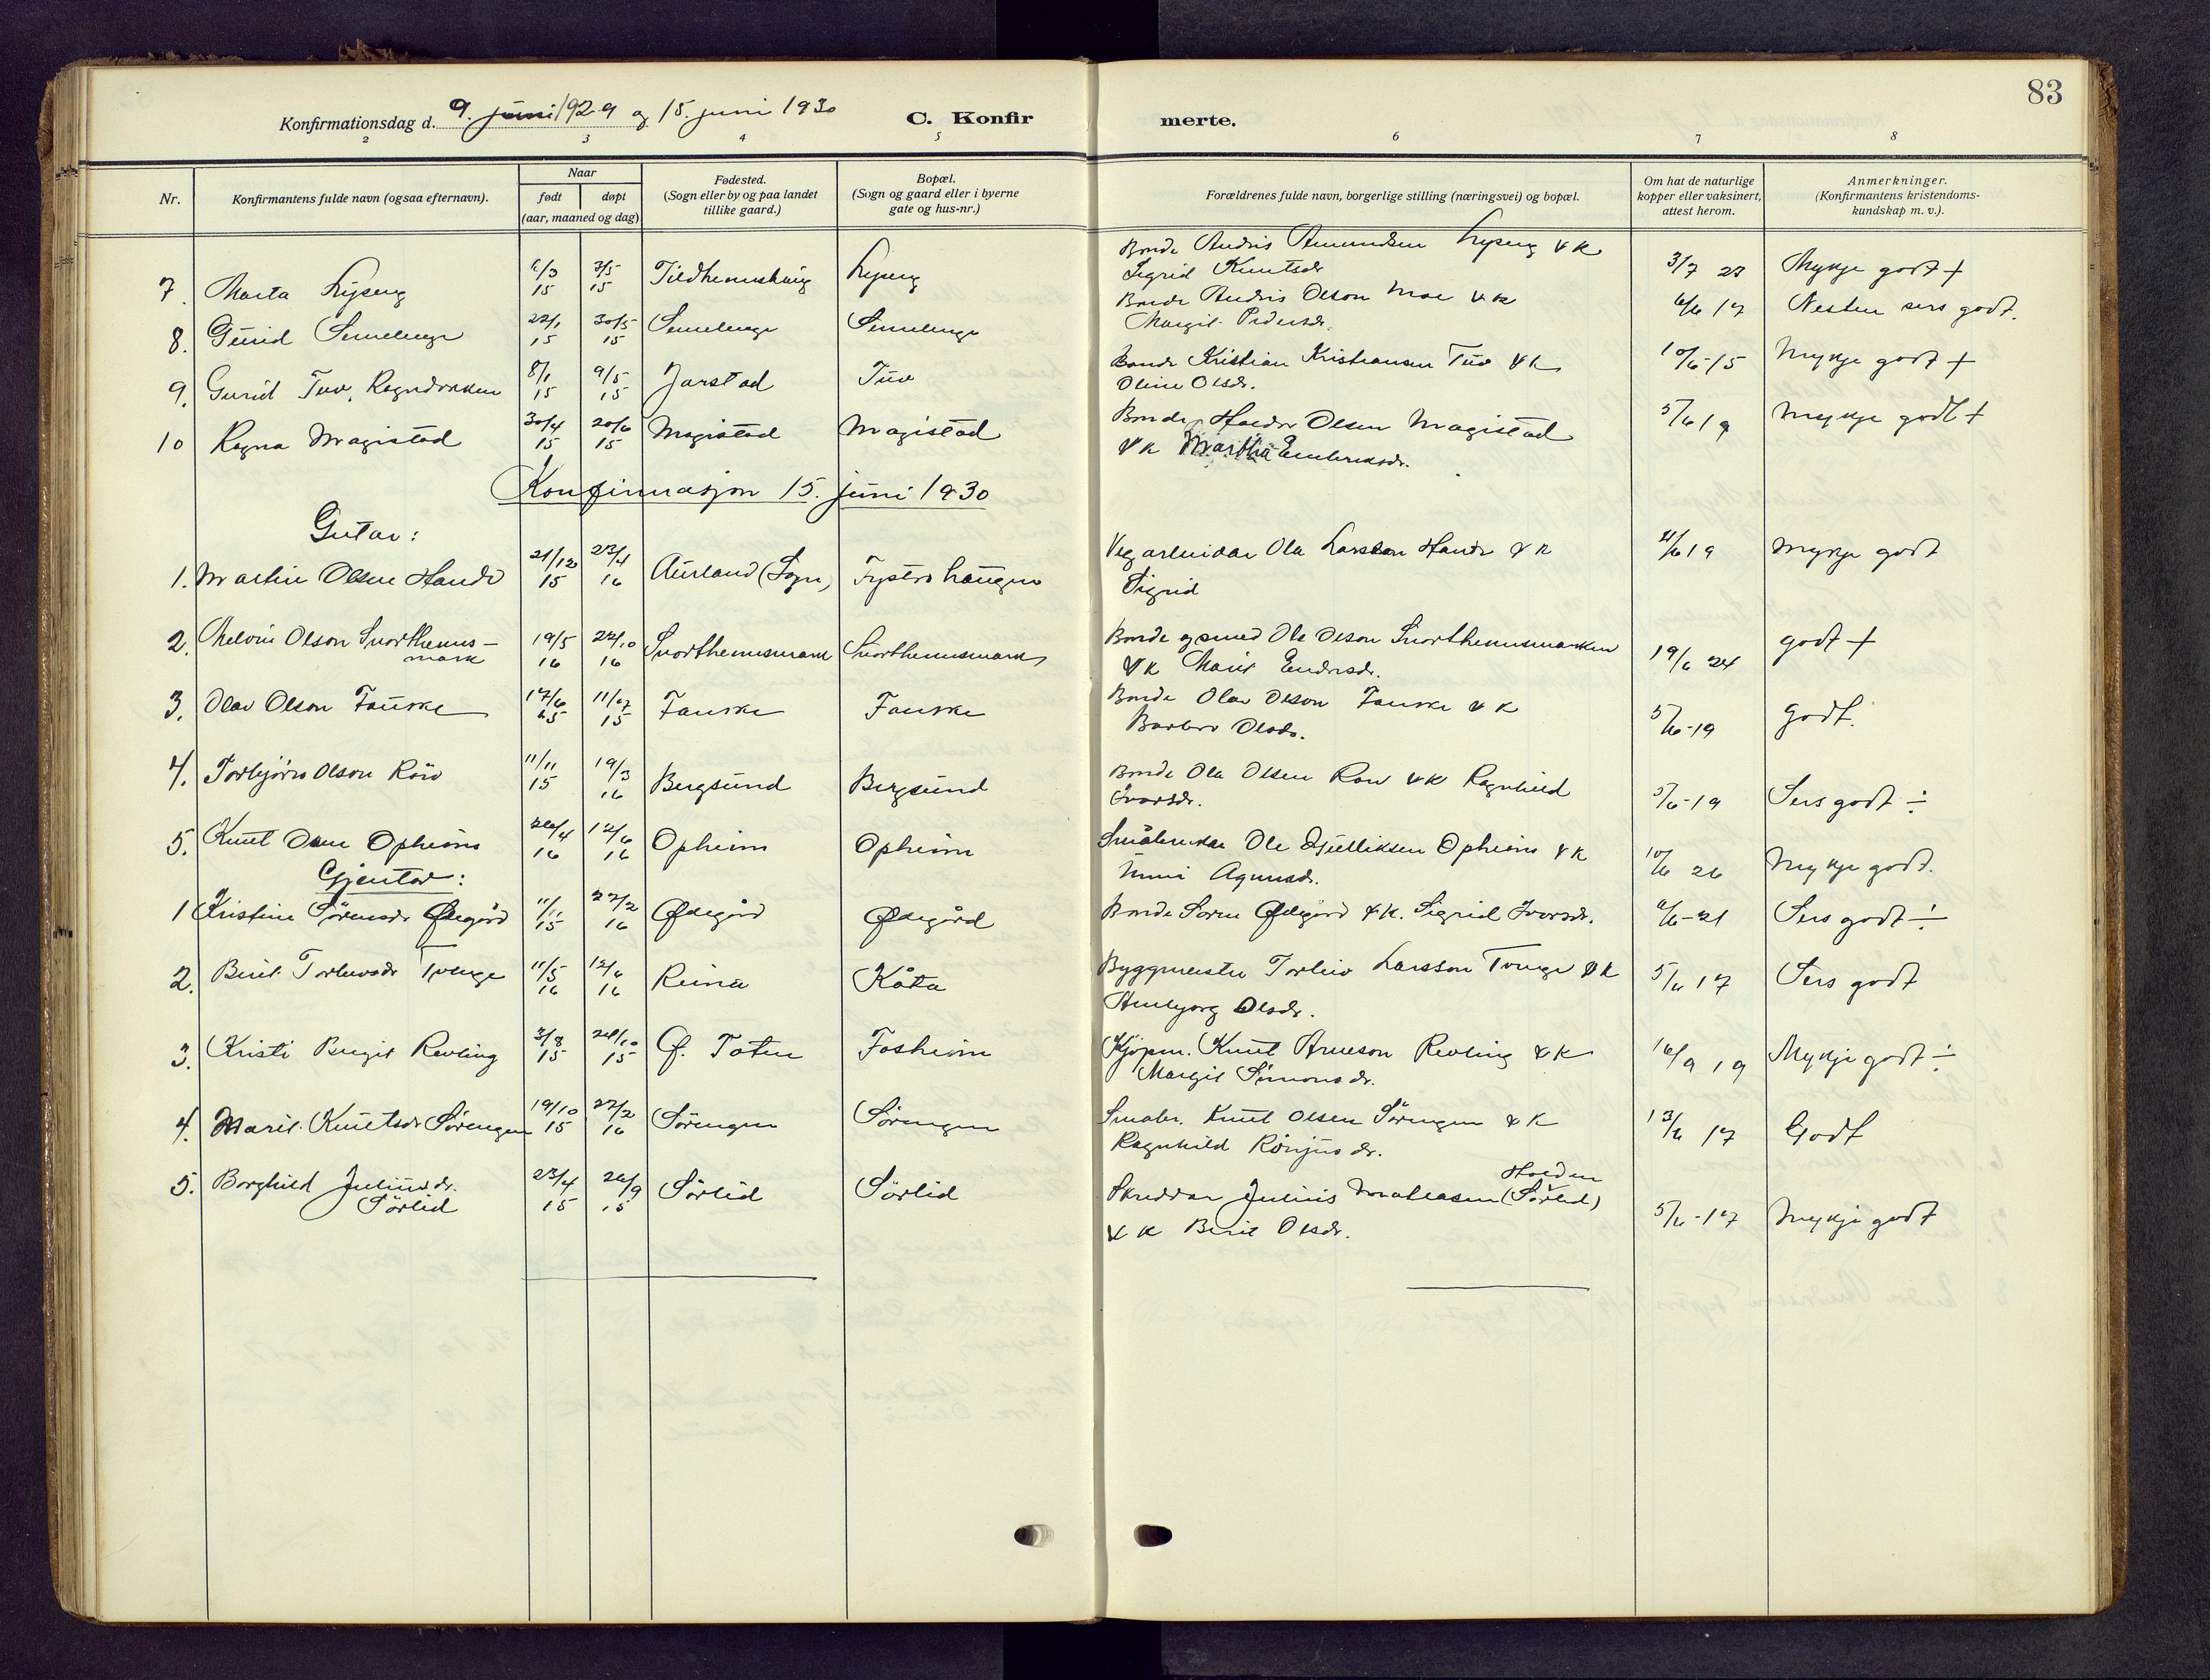 83
Konfirmationsdag d. 9. juni 1929 og 15. juni 1930
C. Konfirmerte.
2 3 4 5 6 7 8
Nr. Konfirmantens fulde navn (ogsaa efternavn). Naar født døpt (aar, maaned og dag) Fødested. (Sogn eller by og paa landet tillike gaard.) Bopæl. (Sogn og gaard eller i byerne gate og hus-nr.) Forældrenes fulde navn, borgerlige stilling (næringsvei) og bopæl. Om hat de naturlige kopper eller vaksinert, attest herom. Anmerkninger. (Konfirmantens kristendoms-kundskap m. v.).
7. Marta Lyseng /3 15 3/5 15 Lyseng Bonde Andris Amundsen Lyseng & K
Sigrid Knutsdr 3/7 23 Mykje godt +
8. Gurid Semelenge 22/1 15 30/5 15 Semelenge Semelenge Bonde Andris Olson Moe & K
Margit Pedersdr. 6/6 17 Nesten sers godt.
9. Gurid Tuv, Rogndokken 8/1 15 9/5 15 Jarstad Tuv Bonde Kristian Kristiansen Tuv & K
Oline Olsdr. 10/6-15 Mykje godt +
10 Ragna Magistad 30/4 15 20/6 15 Magistad Magistad Bonde Haldor Olsen Magistad
& K Martha Embriksdr. 5/6 19 Mykje godt +
Konfirmasjon 15. juni 1930
Gutar:
1. Martin Olsen Hande 21/12 15 23/4 16 Aurland (Sogn) Fystro haugen Vegarbeidar Ola Larsen Hande & K
Sigrid 4/6 19 Mykje godt
2. Melvin Olson Snorthemsmark 19/5 16 22/10 16 Snorthemsmark Snorthemsmark Bonde og smed Ole Olson Snorthemsmarken
& K Marit Endresdr. 19/6 24 godt +
3. Olav Olson Fauske 17/6 15 11/7 15 Fauske Fauske Bonde Olav Olson Fauske & K
Barbro Olsdr. 5/6-19 Godt.
4. Torbjørn Olson Røiv 11/11 15 19/3 16 Bergsund Bergsund Bonde Ola Olsen Røiv & K Ragnhild
Ivarsdr. 5/6-19 Sers godt ÷
5. Knut Olsen Opheim 26/4 16 12/6 16 Opheim Opheim Småbrukar Ole Gulliksen Opheim & K
Unni 10/6 26 Mykje godt.
Gjentor:
1 Kristine Sörensdr Ødegård 11/11 15 27/2 16 Ødegård Ødegård Bonde Sören Ødegård & K. Sigrid Ivarsdr. /6-21 Sers godt ÷
2. Berit Torleivsdr Tvenge 11/5 16 12/6 16 Reina Kåta Byggmester Torleiv Larsson Tvenge & K
Ambjørg Olsdr. 5/6 17 Sers godt
3. Kristi Bergit Revling 3/8 15 24/10 15 Ø. Toten Fosheim Kjöpm. Knut Arneson Revling & K
Margit Simonsdr. 16/9 19 Mykje godt ÷
4. Marit Knutsdr Sörengen 19/10 15 27/2 16 Sörengen Sörengen Småbr. Knut Olsen Sörengen & K
Ragnhild 13/6 17 Godt
5. Borghild Juliusdr. Sörlid 23/4 15 26/9 15 Sörlid Sörlid Skreddar Julius Mathiasen Holden (Sörlid)
& K Berit Olsdr. 5/6-17 Mykje godt